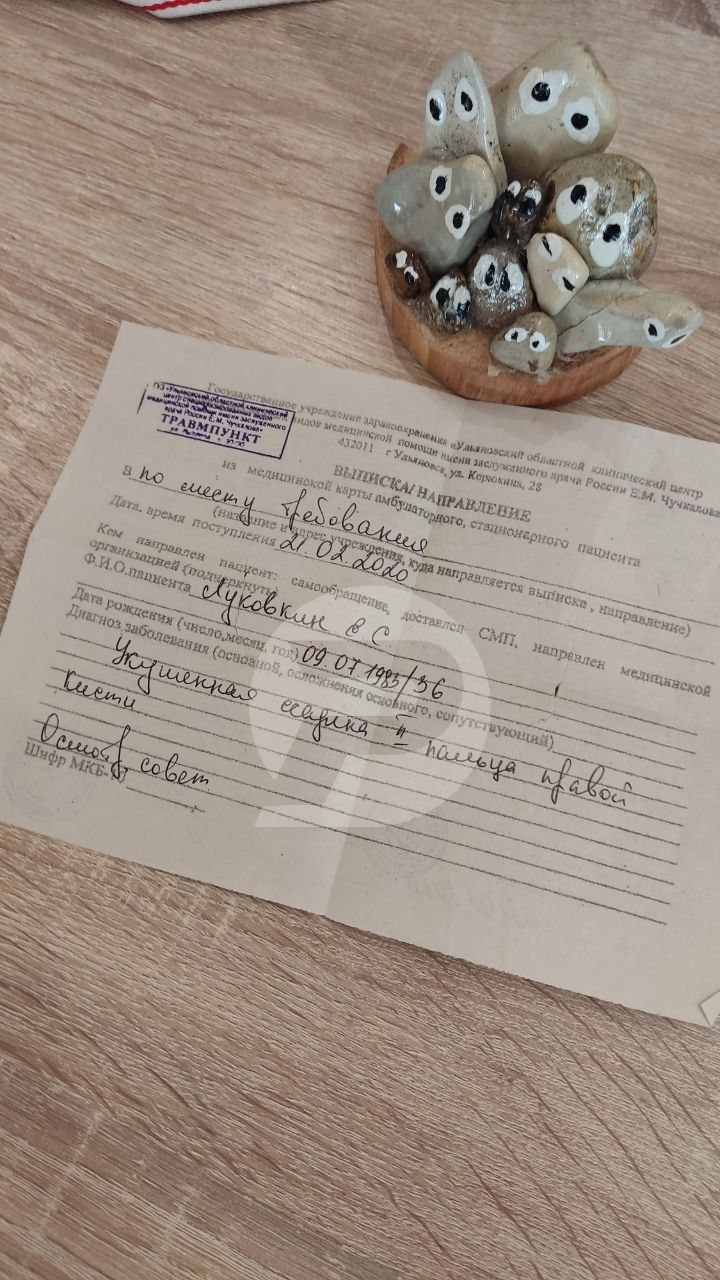 ГУЗ «Ульяновский областной клинический
центр специализированных видов
медицинской помощи имени заслуженного
врача России Е.М. Чучкалова»
ТРАВМПУНКТ
Государственное учреждение здравоохранения «Ульяновский областной клинический центр
видов медицинской помощи имени заслуженного врача России Е.М. Чучкалова
432011 г Ульяновск, ул. Корюкина, 28
ВЫПИСКА/ НАПРАВЛЕНИЕ
из медицинской карты амбулаторного, стационарного пациента
В по месту требования
(название и адрес учреждения, куда направляется выписка , направление)
Дата, время поступления 21.02.2020
Кем направлен пациент: самообращение, доставлен СМП, направлен медицинской
организацией (подчеркнуть)
Ф.И.О.пациента Луковкин В.С.
Дата рождения (число,месяц, год) 09.07.1983/36
Диагноз заболевания (основной, осложнения основного, сопутствующий)
Укушенная ссадина II пальца правой
кисти
Осмотр, совет
Шифр МКБ-